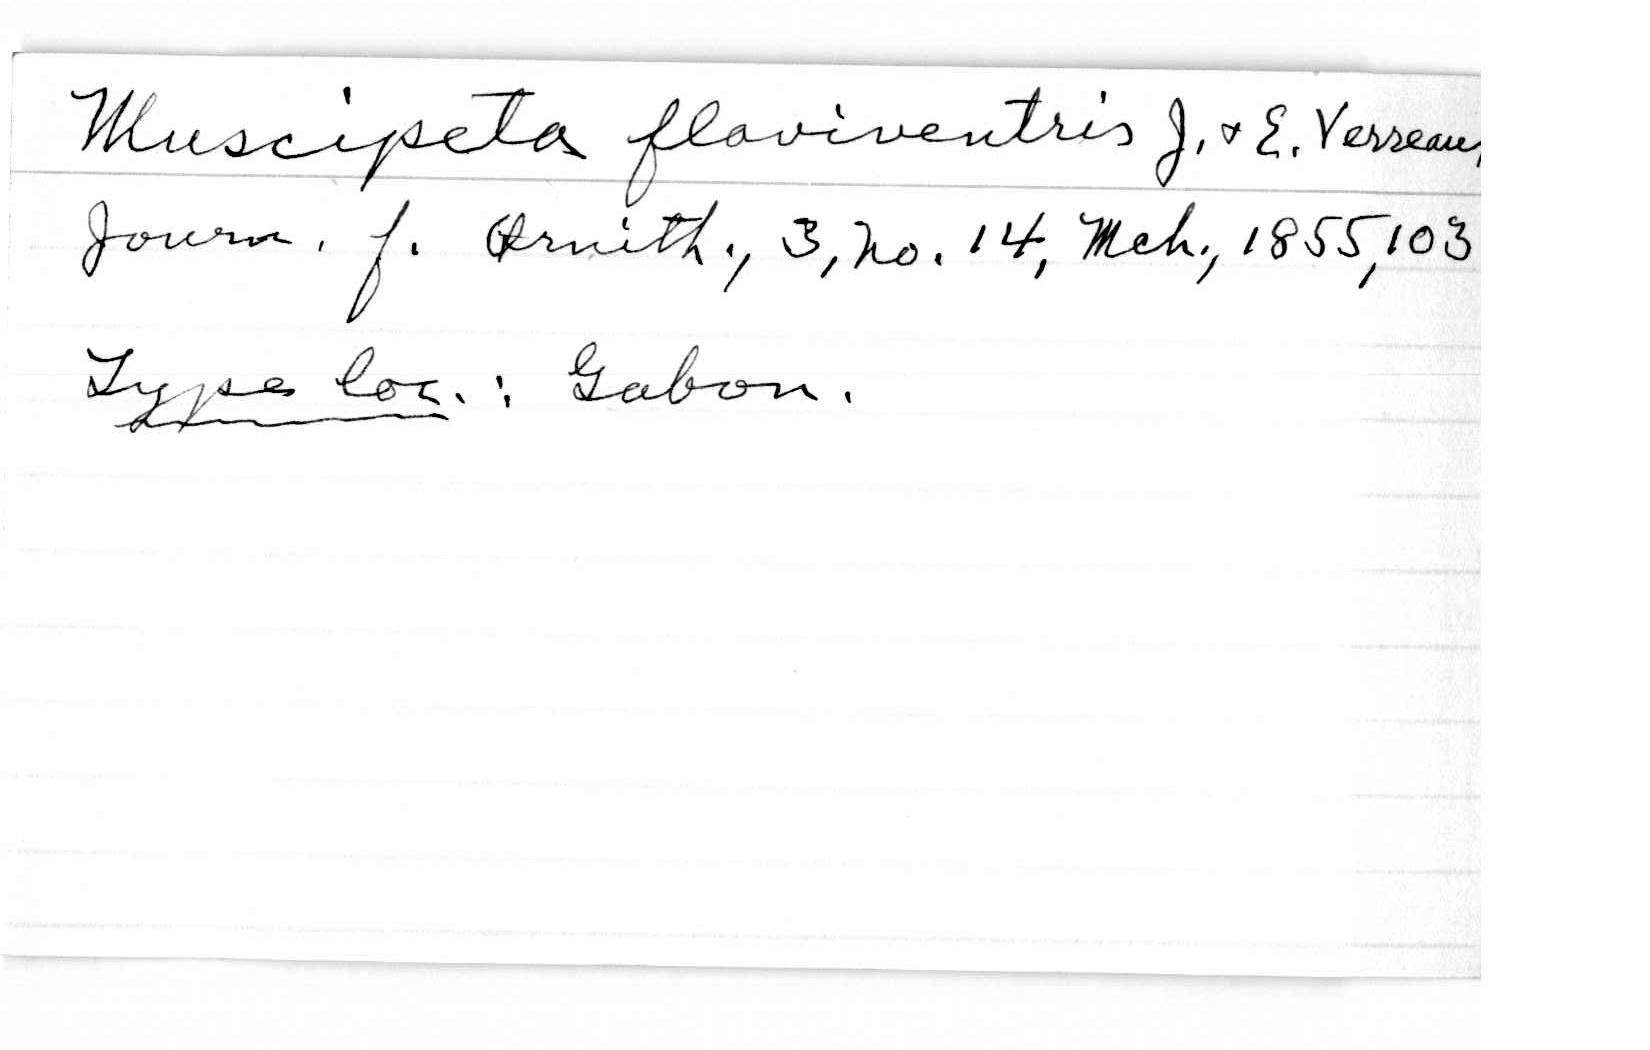 Muscipeta flaviventris J. & E. Verreau
Journ. f. Ornith., 3, No. 14, Mch., 1855, 103
Type loc.: Gabon.